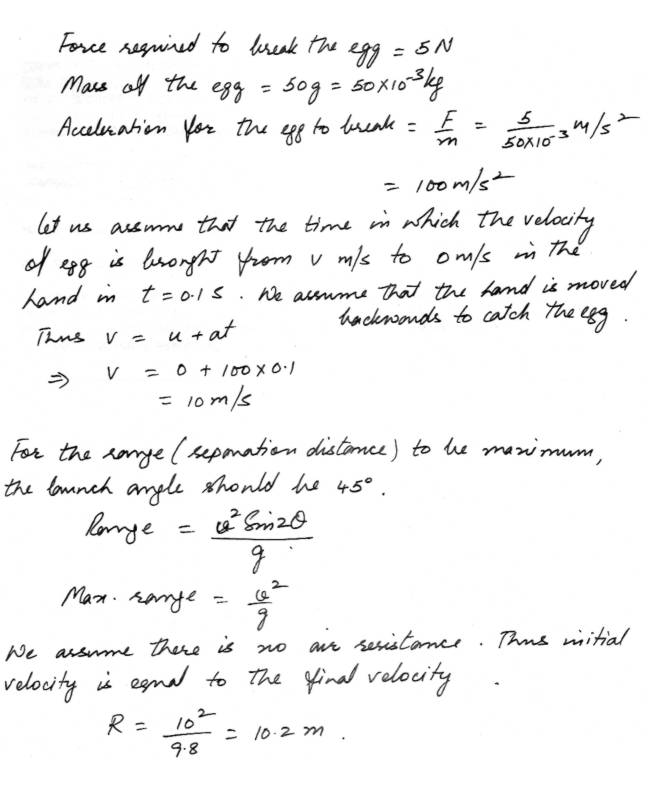 Force required to break the egg = 5N
Mass of the egg = 50g = 50×10⁻³kg
Acceleration for the egg to break = F/m = 5/50×10⁻³ m/s²
= 100m/s²
let us assume that the time in which the velocity
of egg is brought from v m/s to 0 m/s in the
hand in t = 0.1 s. We assume that the hand is moved
backwords to catch the egg.
Thus v = u + at
⇒ v = 0 + 100 × 0.1
= 10 m/s
For the range (separation distance) to be maximum,
the launch angle should be 45°.
Range = u² Sin2θ/g
Max. range = u²/g
We assume there is no air resistance. Thus initial
velocity is equal to the final velocity.
R = 10²/9.8 = 10.2 m.